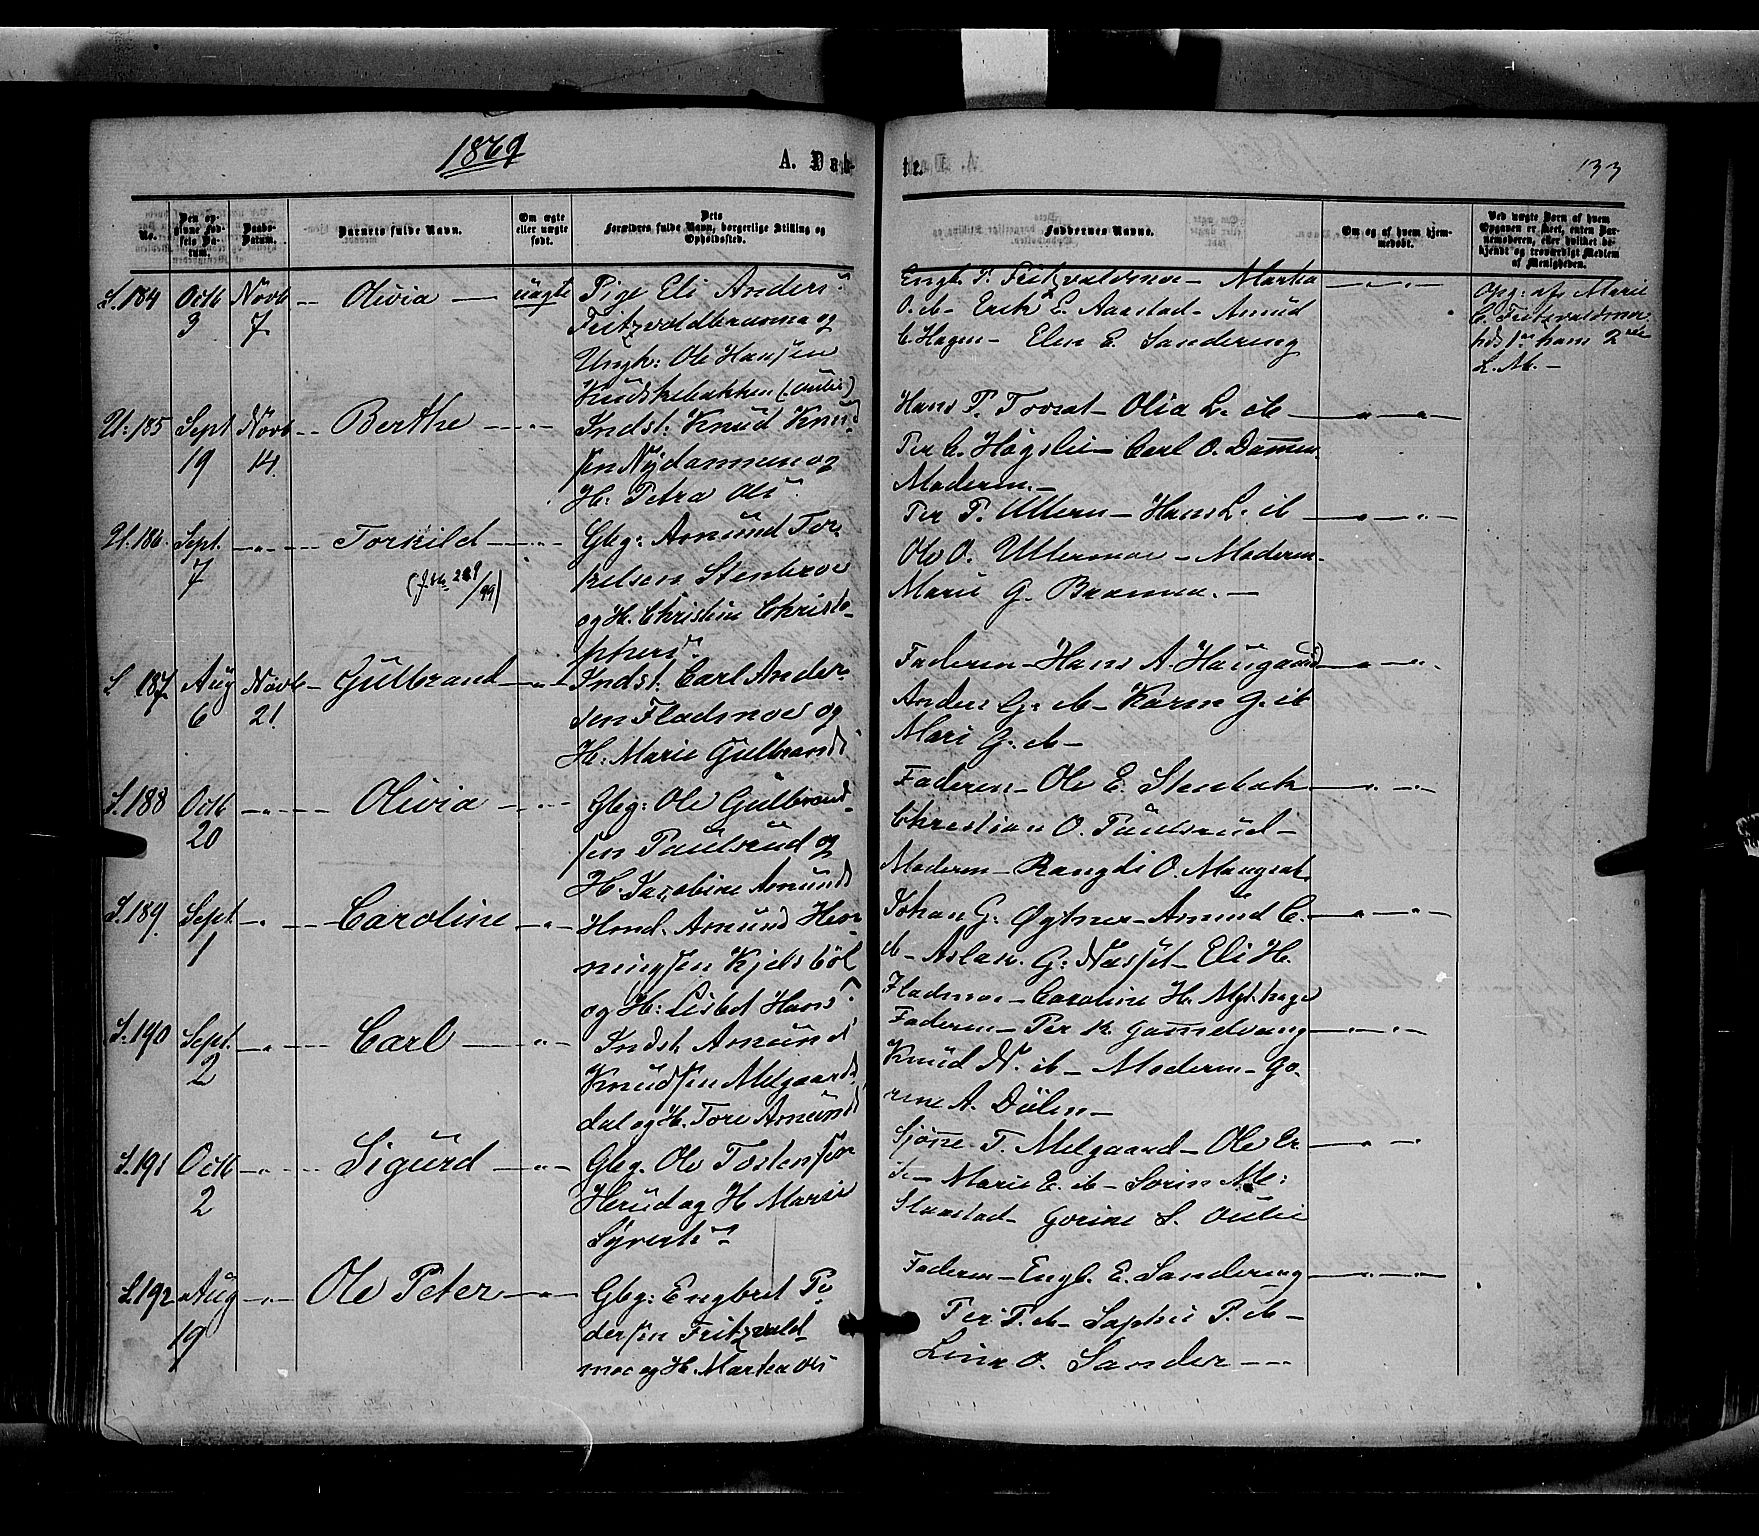 1869
A. Døb-
te.
133
No.
Den opgivne Fødsels Datum.
Daabs-Datum.
Barnets fulde Navn.
Om ægte eller uægte født.
Dets Forældres fulde Navn, borgerlige Stilling og Opholdssted.
Faddernes Navne.
Om og af hvem hjemmedøbt.
Ved uægte Børn af hvem Opgaven er skeet, enten Barnemoderen, eller hvilket bekjendt og troværdigt Medlem af Menigheden.
S. 184 Octb Novb — Olivia — uægte Pige Eli Anders:
3 7 Fritzvoldbraaena og
Ungk: Ole Hansen
(Oulie)
Engb. P. Fritzvaldmoe — Marthea
O. ib — Erik E. Aaastad — Amund
C. Hagen — Elen E. Sandering
Opg: af Marie
C. Fritzvaldmoe
L. M. —
U. 185 Sept Novb — Berthe — " — Indst: Knud Knud
19 14 sen Nydammen og
H: Petra Ols:
Hans P. Tveset — Olia L. ib — " —
Per C. Høgslie — Carl O. Dammen.
Moderen. —
U. 186. Sept. — " — Torkild — " — Gbg: Amund Tor-
7 kelsen Stenbroe
og H. Christine Christo-
phers:
Per P. Ullern — Hans L. ib — " — " —
Ole O. Ullernmoe — Moderen —
Marie G. Braanen. —
S 187. Aug Novb — Gulbrand — " — Indst. Carl Ander-
6 21 sen Fladmoe og
H: Marie Gulbrands
Faderen — Hans A. Haugaard — " — " —
Anders G. ib — Karen G. ib
Mari G. ib —
S. 188 Octb — " — Olivia — " — Gbg: Ole Gulbrand-
20 sen Paulsrud og
H. Jacobine Amunds
Faderen — Ole E. Stenbak — " —
Christian O. Paulsrud —
Moderen — Rangdi O. Mangset.
S. 189. Sept — " — Caroline — " — Hmd. Amund Hen-
1 ningsen Kjelsböl
og H: Lisbet Hans:
Johan G. Øgtner — Amund C. — " — " —
ib — Aslak G. Næsset — Eli H.
Fladmoe — Caroline H.
S. 190 Sept. — " — Carl — " — Indst. Amund
2 Knudsen Melgaards
dal og H. Tore Amunds
Faderen — Per K. Gammelvang — " — " —
Knud N. ib — Moderen — Go-
rine A. Dølen —
S. 191 Octb — " — Sigurd — " — Gbg. Ole Tostensen
2 Herud og H Marie
Syverts:
Sjönne T. Melgaard — Ole Er — " —
ib — Marie E. ib — Sörin M:
Slaastad — Gorine S. Oulie
S. 192 Aug — " — Ole Peter — " — Gbg: Engbret Pe-
19 dersen Fritzvold
moe og H. Marthea Ols
Faderen — Engb. E. Sandering — " — " —
Per P. ib — Sophie P. ib —
Lina O. Sander — " —